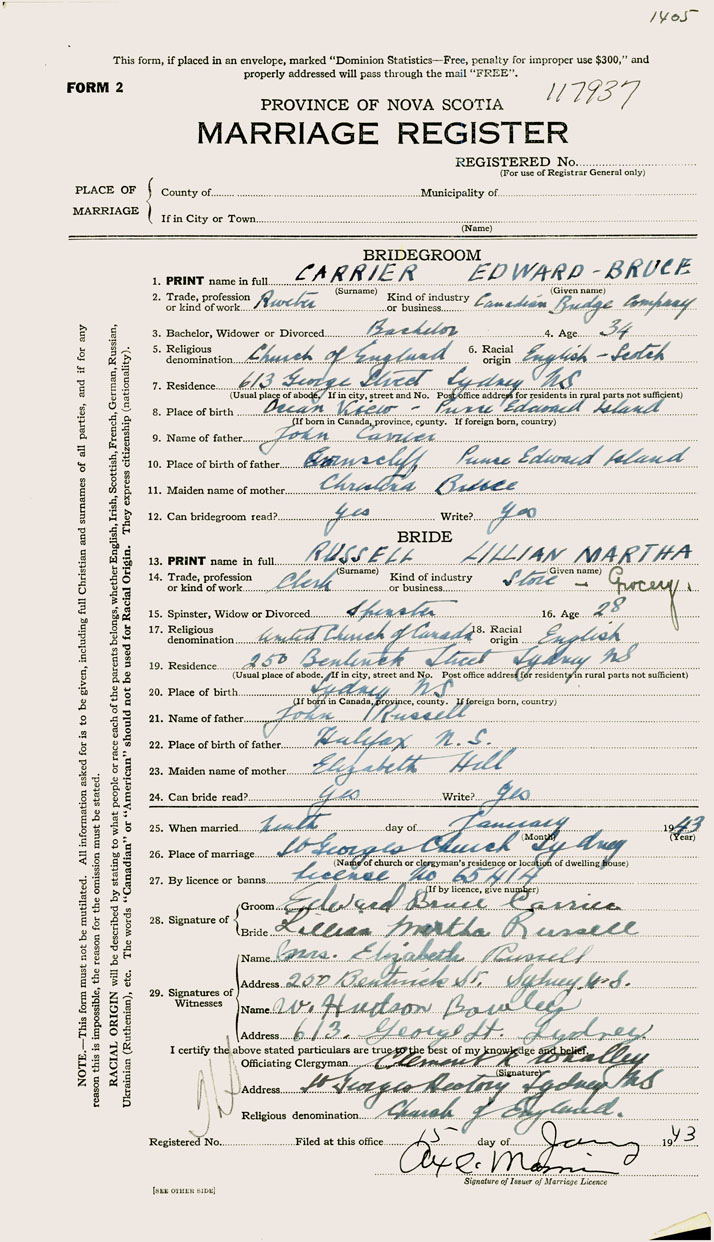 1405
This form, if placed in an envelope, marked "Dominion Statistics—Free, penalty for improper use $300," and
properly addressed will pass through the mail "FREE".
FORM 2
117937
PROVINCE OF NOVA SCOTIA
MARRIAGE REGISTER
REGISTERED No.
(For use of Registrar General only)
PLACE OF MARRIAGE
County of Municipality of
If in City or Town
(Name)
BRIDEGROOM
1. PRINT name in full CARRIER EDWARD-BRUCE
(Surname) (Given name)
2. Trade, profession or kind of work Kind of industry or business Canadian Bridge Company
3. Bachelor, Widower or Divorced Bachelor 4. Age 34
5. Religious denomination Church of England 6. Racial origin English-Scotch
7. Residence 613 George Street Sydney NS
(Usual place of abode. If in city, street and No. Post office address for residents in rural parts not sufficient)
8. Place of birth Ocean View - Prince Edward Island
(If born in Canada, province, county. If foreign born, country)
9. Name of father John Carrier
10. Place of birth of father Prince Edward Island
11. Maiden name of mother Christina Bruce
12. Can bridegroom read? yes Write? yes
BRIDE
13. PRINT name in full RUSSELL LILLIAN MARTHA
(Surname) (Given name)
14. Trade, profession or kind of work Clerk Kind of industry or business Store - Grocery.
15. Spinster, Widow or Divorced Spinster 16. Age 28
17. Religious denomination United Church of Canada 18. Racial origin English
19. Residence 250 Bentinck Street Sydney NS
(Usual place of abode. If in city, street and No. Post office address for residents in rural parts not sufficient)
20. Place of birth Sydney NS
(If born in Canada, province, county. If foreign born, country)
21. Name of father John Russell
22. Place of birth of father Halifax N.S.
23. Maiden name of mother Elizabeth Hill
24. Can bride read? yes Write? yes
25. When married ninth day of January 1943
(Month) (Year)
26. Place of marriage St Georges Church Sydney
(Name of church or clergyman's residence or location of dwelling house)
27. By licence or banns License No 65414
(If by licence, give number)
28. Signature of
Groom Edward Bruce Carrier
Bride Lillian Martha Russell
29. Signatures of Witnesses
Name Mrs. Elizabeth Russell
Address 250 Bentinck St. Sydney N.S.
Name W. Hudson Bowley
Address 613. George St. Sydney
I certify the above stated particulars are true to the best of my knowledge and belief.
Officiating Clergyman Clement R Whalley
(Signature)
Address St Georges Rectory Sydney NS
Religious denomination Church of England.
Registered No. Filed at this office 15 day of Jany 1943
Signature of Issuer of Marriage Licence
[SEE OTHER SIDE]
NOTE.—This form must not be mutilated. All information asked for is to be given, including full Christian and surnames of all parties, and if for any
reason this is impossible, the reason for the omission must be stated.
RACIAL ORIGIN will be described by stating to what people or race each of the parents belongs, whether English, Irish, Scottish, French, German, Russian,
Ukrainian (Ruthenian), etc. The words "Canadian" or "American" should not be used for Racial Origin. They express citizenship (nationality).